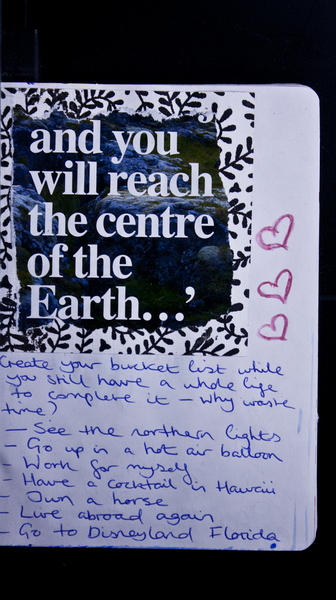 and you
will reach
the centre
of the
Earth...’
Create your bucket list while
you still have a whole life
to complete it – why waste
time?
– See the northern lights
– Go up in a hot air balloon
– Work for myself
– Have a cocktail in Hawaii
– Own a horse
– Live abroad again
– Go to Disneyland Florida